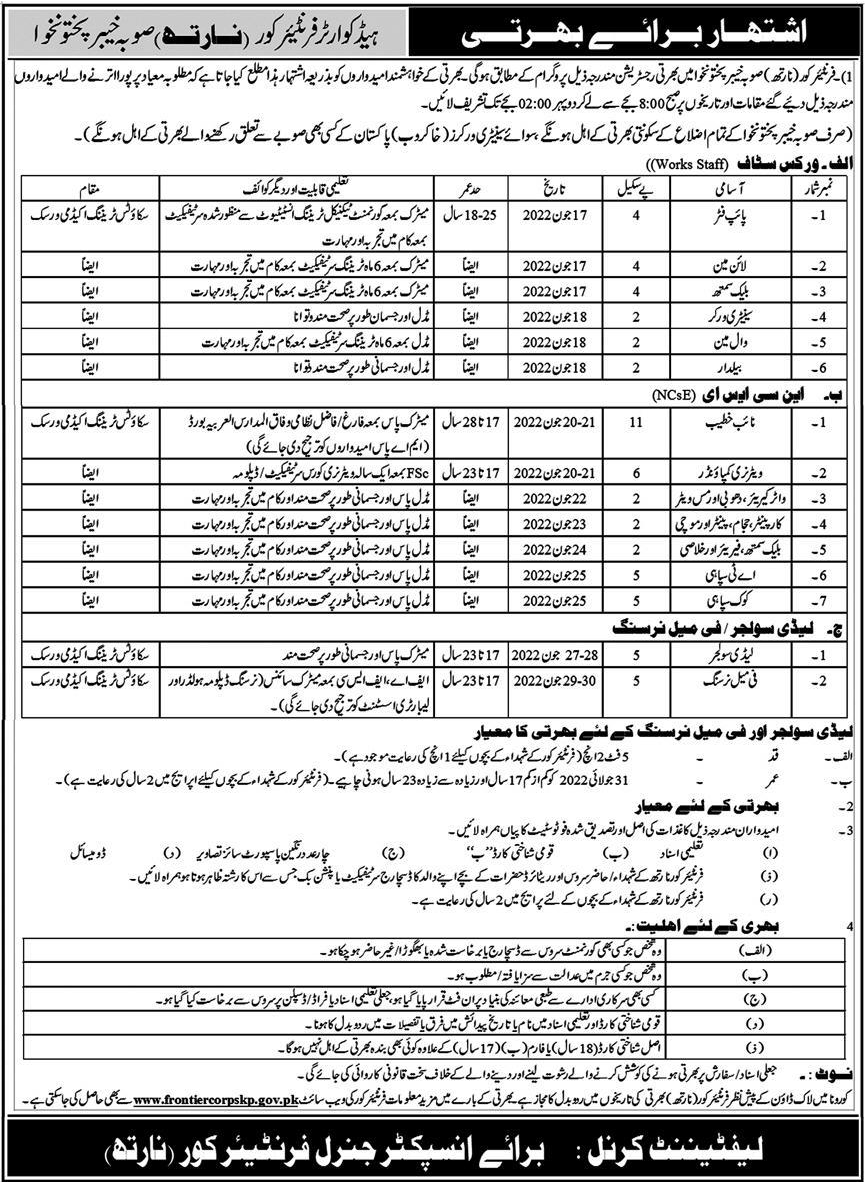 اشتہار برائے بھرتی
ہیڈ کوارٹر فرنٹیئر کور (نارتھ) صوبہ خیبر پختونخوا
1) فرنٹیئر کور (نارتھ) صوبہ خیبر پختونخوا میں بھرتی رجسٹریشن مندرجہ ذیل پروگرام کے مطابق ہوگی۔ بھرتی کے خواہشمند امیدواروں کو بذریعہ اشتہار ہذا مطلع کیا جاتا ہے کہ مطلوبہ معیار پر پورا اترنے والے امیدواروں
مندرجہ ذیل دیئے گئے مقامات اور تاریخوں پر صبح 8:00 بجے سے لے کر دوپہر 02:00 بجے تک تشریف لائیں۔
(صرف صوبہ خیبر پختونخوا کے تمام اضلاع کے سکونتی بھرتی کے اہل ہونگے، سوائے سینیٹری ورکرز (خاکروب) پاکستان کے کسی بھی صوبے سے تعلق رکھنے والے بھرتی کے اہل ہونگے)۔
الف۔ ورکس سٹاف (Works Staff))
نمبر شمار آسامی پے سکیل تاریخ حد عمر تعلیمی قابلیت اور دیگر کوائف مقام
1۔ پائپ فٹر 4 17 جون 2022 18-25 سال میٹرک بمعہ گورنمنٹ ٹیکنیکل ٹریننگ انسٹیٹیوٹ سے منظور شدہ سرٹیفکیٹ سکاؤٹس ٹریننگ اکیڈمی ورسک
بمعہ کام میں تجربہ اور مہارت
2۔ لائن مین 4 17 جون 2022 ایضاً میٹرک بمعہ 6 ماہ ٹریننگ سرٹیفکیٹ بمعہ کام میں تجربہ اور مہارت ایضاً
3۔ بلیک سمتھ 4 17 جون 2022 ایضاً میٹرک بمعہ 6 ماہ ٹریننگ سرٹیفکیٹ بمعہ کام میں تجربہ اور مہارت ایضاً
4۔ سینیٹری ورکر 2 18 جون 2022 ایضاً مڈل اور جسمانی طور پر صحت مند و توانا ایضاً
5۔ وال مین 2 18 جون 2022 ایضاً مڈل بمعہ 6 ماہ ٹریننگ سرٹیفکیٹ بمعہ کام میں تجربہ اور مہارت ایضاً
6۔ بیلدار 2 18 جون 2022 ایضاً مڈل اور جسمانی طور پر صحت مند و توانا ایضاً
ب۔ این سی ایس ای (NCsE)
1۔ نائب خطیب 11 20-21 جون 2022 17 تا 28 سال میٹرک پاس بمعہ فارغ/ فاضل نظامی وفاق المدارس العربیہ بورڈ سکاؤٹس ٹریننگ اکیڈمی ورسک
(ایم اے پاس امیدواروں کو ترجیح دی جائے گی)
2۔ ویٹرنری کمپاؤنڈر 6 20-21 جون 2022 17 تا 23 سال FSc بمعہ ایک سالہ ویٹرنری کورس سرٹیفکیٹ/ ڈپلومہ ایضاً
3۔ واٹر کیریئر، دھوبی اور مس ویٹر 2 22 جون 2022 ایضاً مڈل پاس اور جسمانی طور پر صحت مند اور کام میں تجربہ اور مہارت ایضاً
4۔ کارپینٹر، حجام، پینٹر اور موچی 2 23 جون 2022 ایضاً مڈل پاس اور جسمانی طور پر صحت مند اور کام میں تجربہ اور مہارت ایضاً
5۔ بلیک سمتھ، فیریئر اور خلاصی 2 24 جون 2022 ایضاً مڈل پاس اور جسمانی طور پر صحت مند اور کام میں تجربہ اور مہارت ایضاً
6۔ اے ٹی سپاہی 5 25 جون 2022 ایضاً مڈل پاس اور جسمانی طور پر صحت مند اور کام میں تجربہ اور مہارت ایضاً
7۔ کوک سپاہی 5 25 جون 2022 ایضاً مڈل پاس اور جسمانی طور پر صحت مند اور کام میں تجربہ اور مہارت ایضاً
ج۔ لیڈی سولجر / فی میل نرسنگ
1۔ لیڈی سولجر 5 27-28 جون 2022 17 تا 23 سال میٹرک پاس اور جسمانی طور پر صحت مند سکاؤٹس ٹریننگ اکیڈمی ورسک
2۔ فی میل نرسنگ 5 29-30 جون 2022 17 تا 23 سال ایف اے، ایف ایس سی بمعہ میٹرک سائنس (نرسنگ ڈپلومہ ہولڈر اور سکاؤٹس ٹریننگ اکیڈمی ورسک
لیبارٹری اسسٹنٹ کو ترجیح دی جائے گی)۔
لیڈی سولجر اور فی میل نرسنگ کے لئے بھرتی کا معیار
الف۔ قد - 5 فٹ 2 انچ (فرنٹیئر کور کے شہداء کے بچوں کیلئے 1 انچ کی رعایت موجود ہے)۔
ب۔ عمر - 31 جولائی 2022 کو کم از کم 17 سال اور زیادہ سے زیادہ 23 سال ہونی چاہیے۔ (فرنٹیئر کور کے شہداء کے بچوں کیلئے اپر ایج میں 2 سال کی رعایت ہے)۔
2۔ بھرتی کے لئے معیار
3۔ امیدواران مندرجہ ذیل کاغذات کی اصل اور تصدیق شدہ فوٹوسٹیٹ کاپیاں ہمراہ لائیں۔
(ا) تعلیمی اسناد (ب) قومی شناختی کارڈ "ب" (ج) چار عدد رنگین پاسپورٹ سائز تصاویر (د) ڈومیسائل
(ذ) فرنٹیئر کور نارتھ کے شہداء/ حاضر سروس اور ریٹائرڈ حضرات کے بچے اپنے والد کا ڈسچارج سرٹیفکیٹ یا پنشن بک جس سے اس کا رشتہ ظاہر ہوتا ہو ہمراہ لائیں۔
(ر) فرنٹیئر کور نارتھ کے شہداء کے بچوں کے لئے اپر ایج میں 2 سال کی رعایت ہے۔
4 بھری کے لئے اھلیت:۔
(الف) وہ شخص جو کسی بھی گورنمنٹ سروس سے ڈسچارج یا برخاست شدہ یا بھگوڑا/ غیر حاضر ہوچکا ہو۔
(ب) وہ شخص جو کسی جرم میں عدالت سے سزا یافتہ/ مطلوب ہو۔
(ج) کسی بھی سرکاری ادارے سے طبعی معائنہ کی بنیاد پر ان فٹ قرار پایا گیا ہو، جعلی تعلیمی اسناد یا فراڈ/ ڈسپلن پر سروس سے برخاست کیا گیا ہو۔
(د) قومی شناختی کارڈ اور تعلیمی اسناد میں نام یا تاریخ پیدائش میں فرق یا تفصیلات میں ردوبدل کا ہونا۔
(ذ) اصل شناختی کارڈ (18 سال) یا فارم (ب) (17 سال) کے علاوہ کوئی بھی بندہ بھرتی کے اہل نہیں ہوگا۔
نوٹ:۔ جعلی اسناد/ سفارش پر بھرتی ہونے کی کوشش کرنے والے رشوت لینے اور دینے والے کے خلاف سخت قانونی کاروائی کی جائے گی۔
کورونا میں لاک ڈاؤن کے پیش نظر فرنٹیئر کور (نارتھ) بھرتی کی تاریخوں میں ردوبدل کا مجاز ہے۔ بھرتی کے بارے میں مزید معلومات فرنٹیئر کور کی ویب سائٹ www.frontiercorpskp.gov.pk سے بھی حاصل کی جاسکتی ہے۔
لیفٹیننٹ کرنل : برائے انسپکٹر جنرل فرنٹیئر کور (نارتھ)